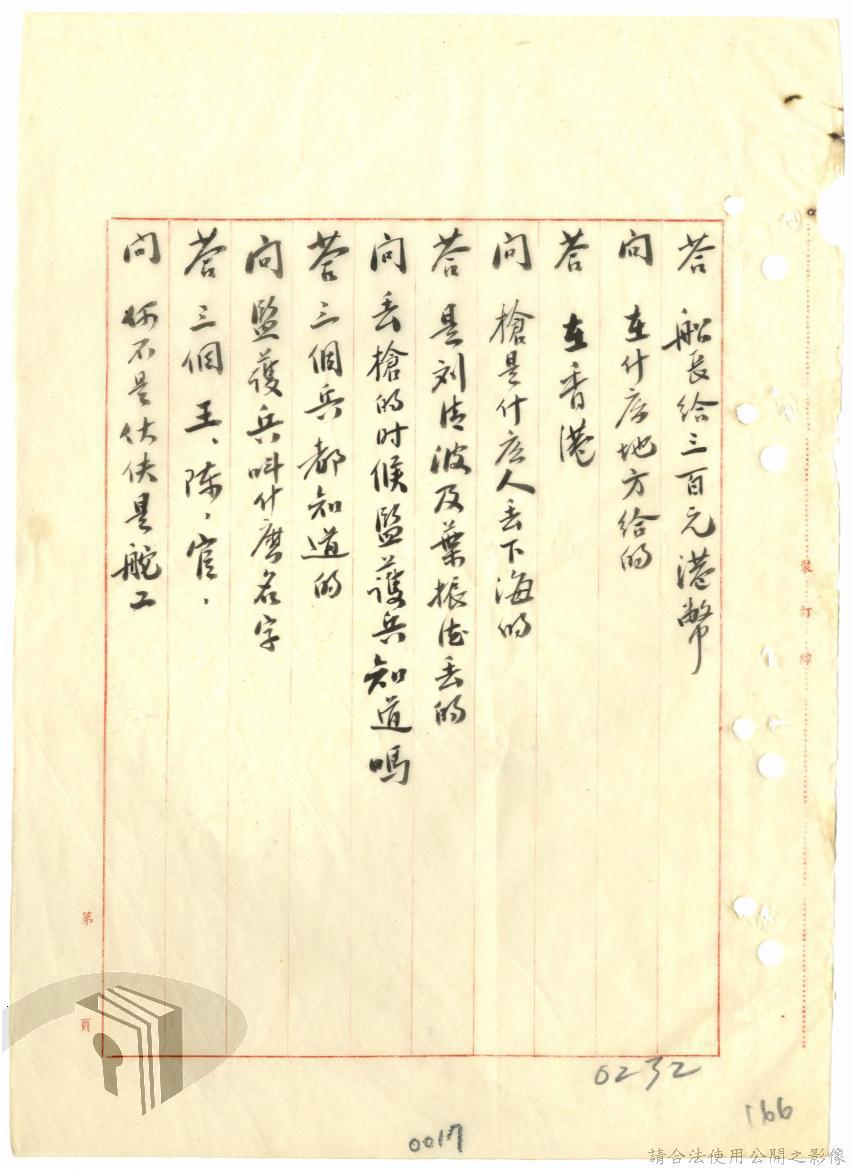 答 船長給三百元港幣
問 在什庅地方給的
答 在香港
問 槍是什庅人丢下海的
答 是刘清波及葉振法丢的
問 丢槍的时候監護兵知道嗎
答 三個兵都知道的
問 監護兵叫什麽名字
答 三個王、陳、官、
問 你不是伙伕是舵工
裝訂線
第 頁
0232
166
0017
請合法使用公開之影像